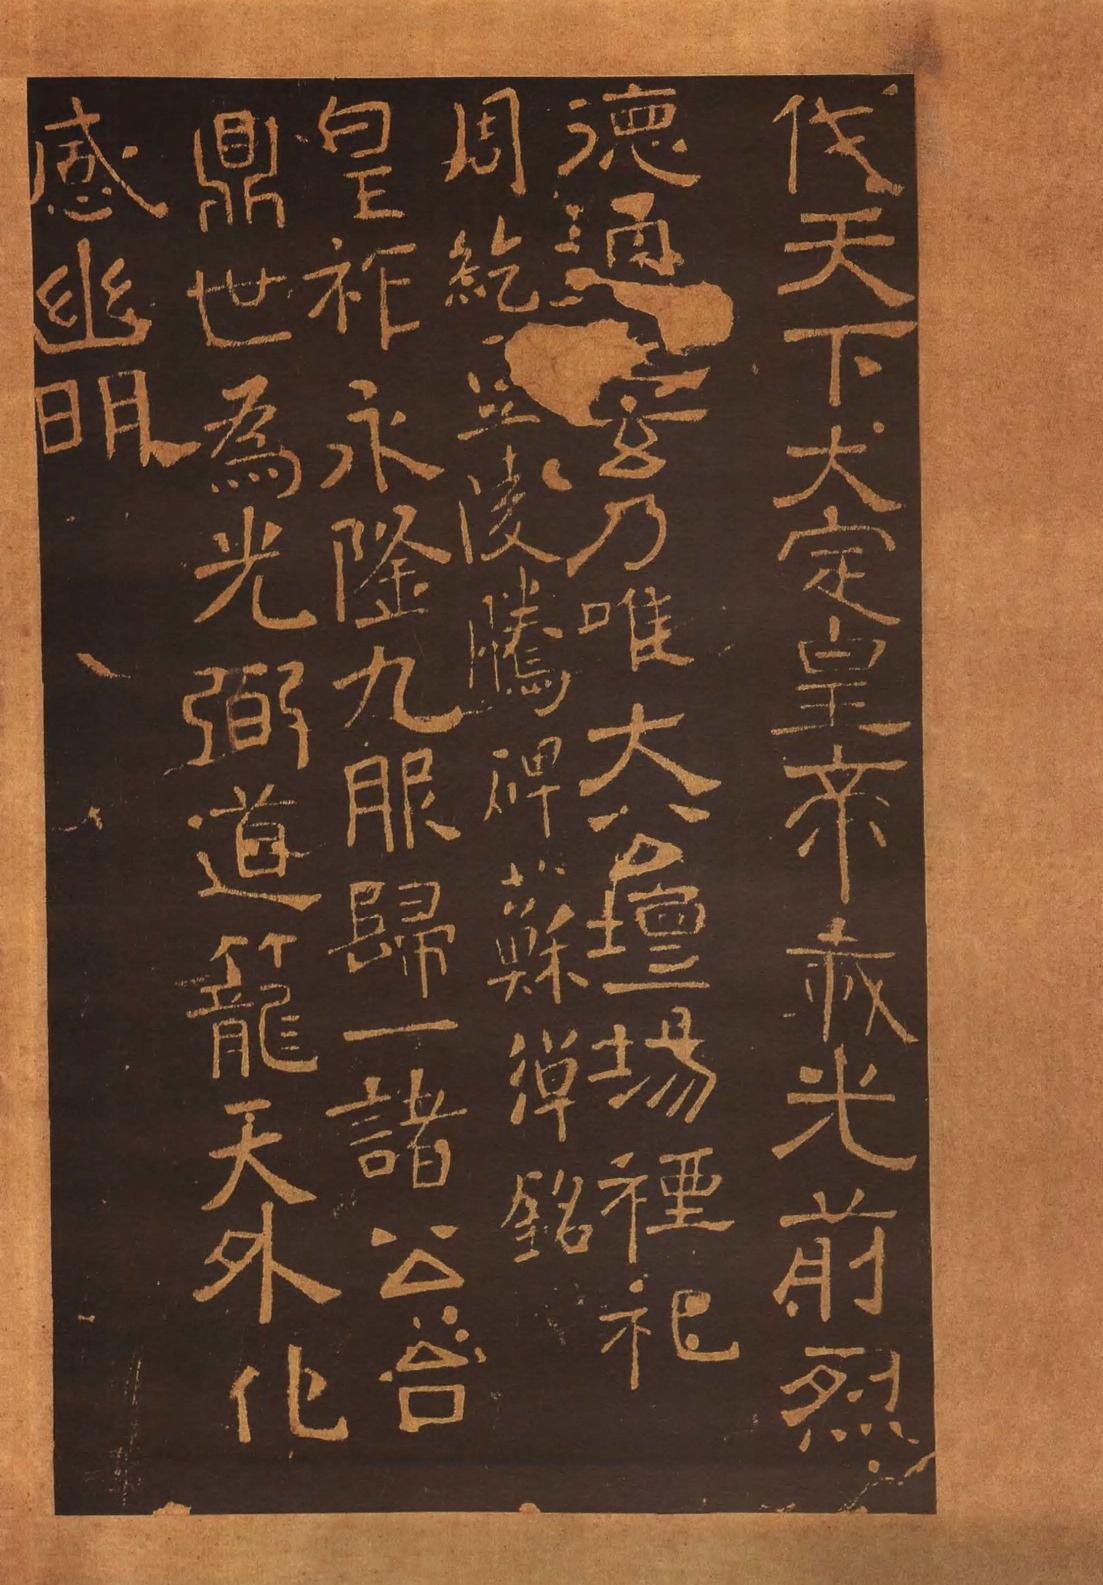 伐天下大定皇帝哉光前烈
德通玄乃唯大壇場禋祀
周紇豆陵騰碑蘇彈銘
皇祚永隆九服歸一諸公台
鼎世為光弼道籠天外化
感幽明